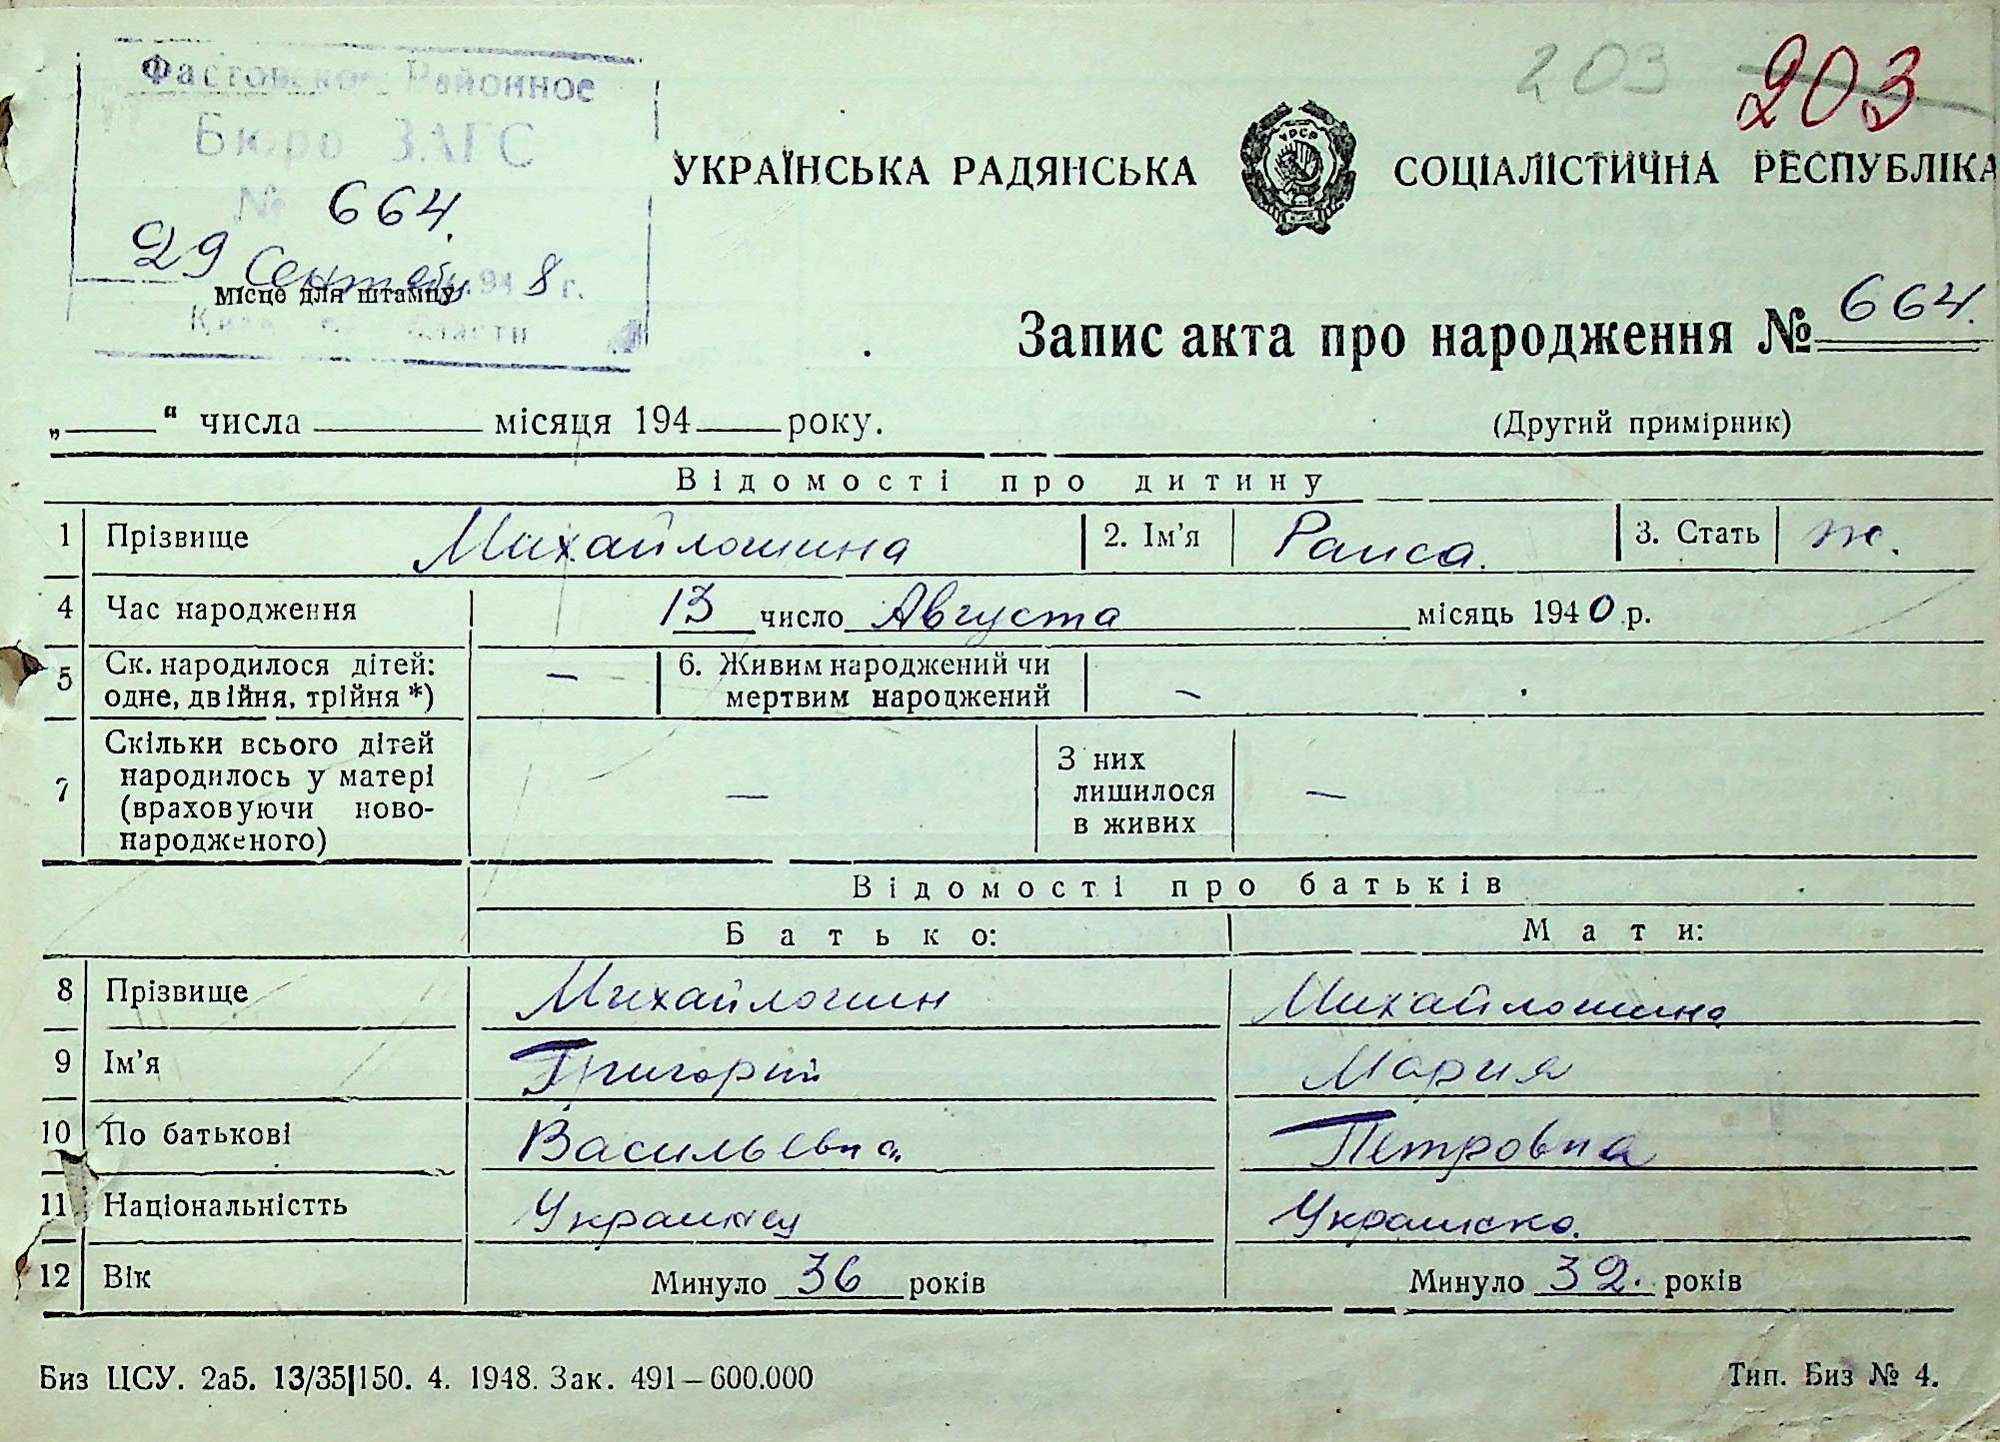 203 203
Фастовское Районное
Бюро ЗАГС
№ 664.
29 Сентября 1948 г.
Місце для штампу
области
УКРАЇНСЬКА РАДЯНСЬКА СОЦІАЛІСТИЧНА РЕСПУБЛІКА
УРСР
Запис акта про народження № 664.
„ “ числа місяця 194 року. (Другий примірник)
Відомості про дитину
1 Прізвище Михайлошина 2. Ім'я Раиса. 3. Стать ж.
4 Час народження 13 число Августа місяць 1940 р.
5 Ск. народилося дітей: одне, двійня, трійня *) — 6. Живим народжений чи мертвим народжений —
7 Скільки всього дітей народилось у матері (враховуючи новонародженого) — З них лишилося в живих —
Відомості про батьків
Батько: Мати:
8 Прізвище Михайлошин Михайлошина
9 Ім'я Григорий Мария
10 По батькові Васильевич Петровна
11 Національністть Украинец Украинка.
12 Вік Минуло 36 років Минуло 32. років
Биз ЦСУ. 2аб. 13/35|150. 4. 1948. Зак. 491—600.000 Тип. Биз № 4.